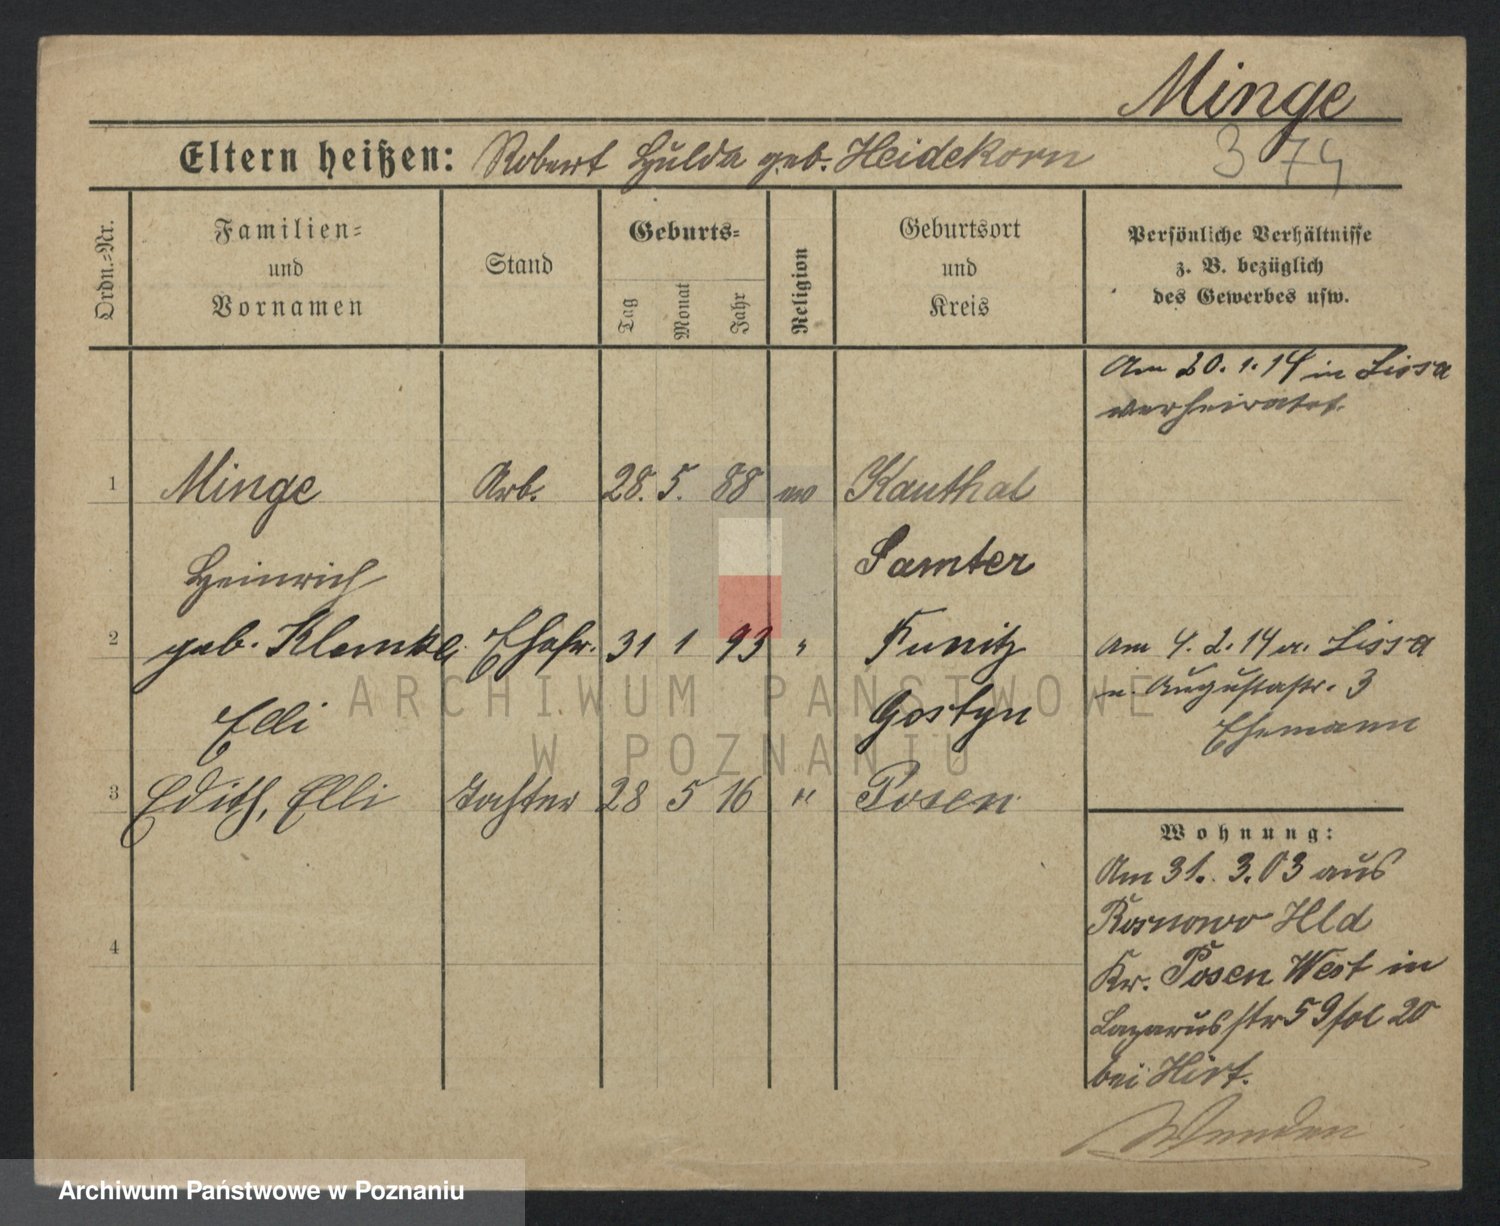 Minge
Eltern heißen: Robert Hulda geb. Heidekorn
3 74
Ordn.-Nr.
Familien-
und
Vornamen
Stand
Geburts-
Tag
Monat
Jahr
Religion
Geburtsort
und
Kreis
Persönliche Verhältnisse
z. B. bezüglich
des Gewerbes usw.
Am 20. 1. 14 in Lissa
verheiratet.
1 Minge Arb. 28. 5. 88 ev Kauthal
Heinrich Samter
2 geb. Klemke, Ehefr. 31 1 93 " Kunitz
Am 4. 2. 14 a. Lissa
n. Augustastr. 3
Elli Gostyn
Ehemann
3 Edith, Elli Tochter 28 5 16 " Posen
4
Wohnung:
Am 31. 3. 03 aus
Rosnowo Hld
Kr. Posen West in
Lazarusstr 59 fol 20
bei Hirt.
Wenden
ARCHIWUM PAŃSTWOWE
W POZNANIU
Archiwum Państwowe w Poznaniu